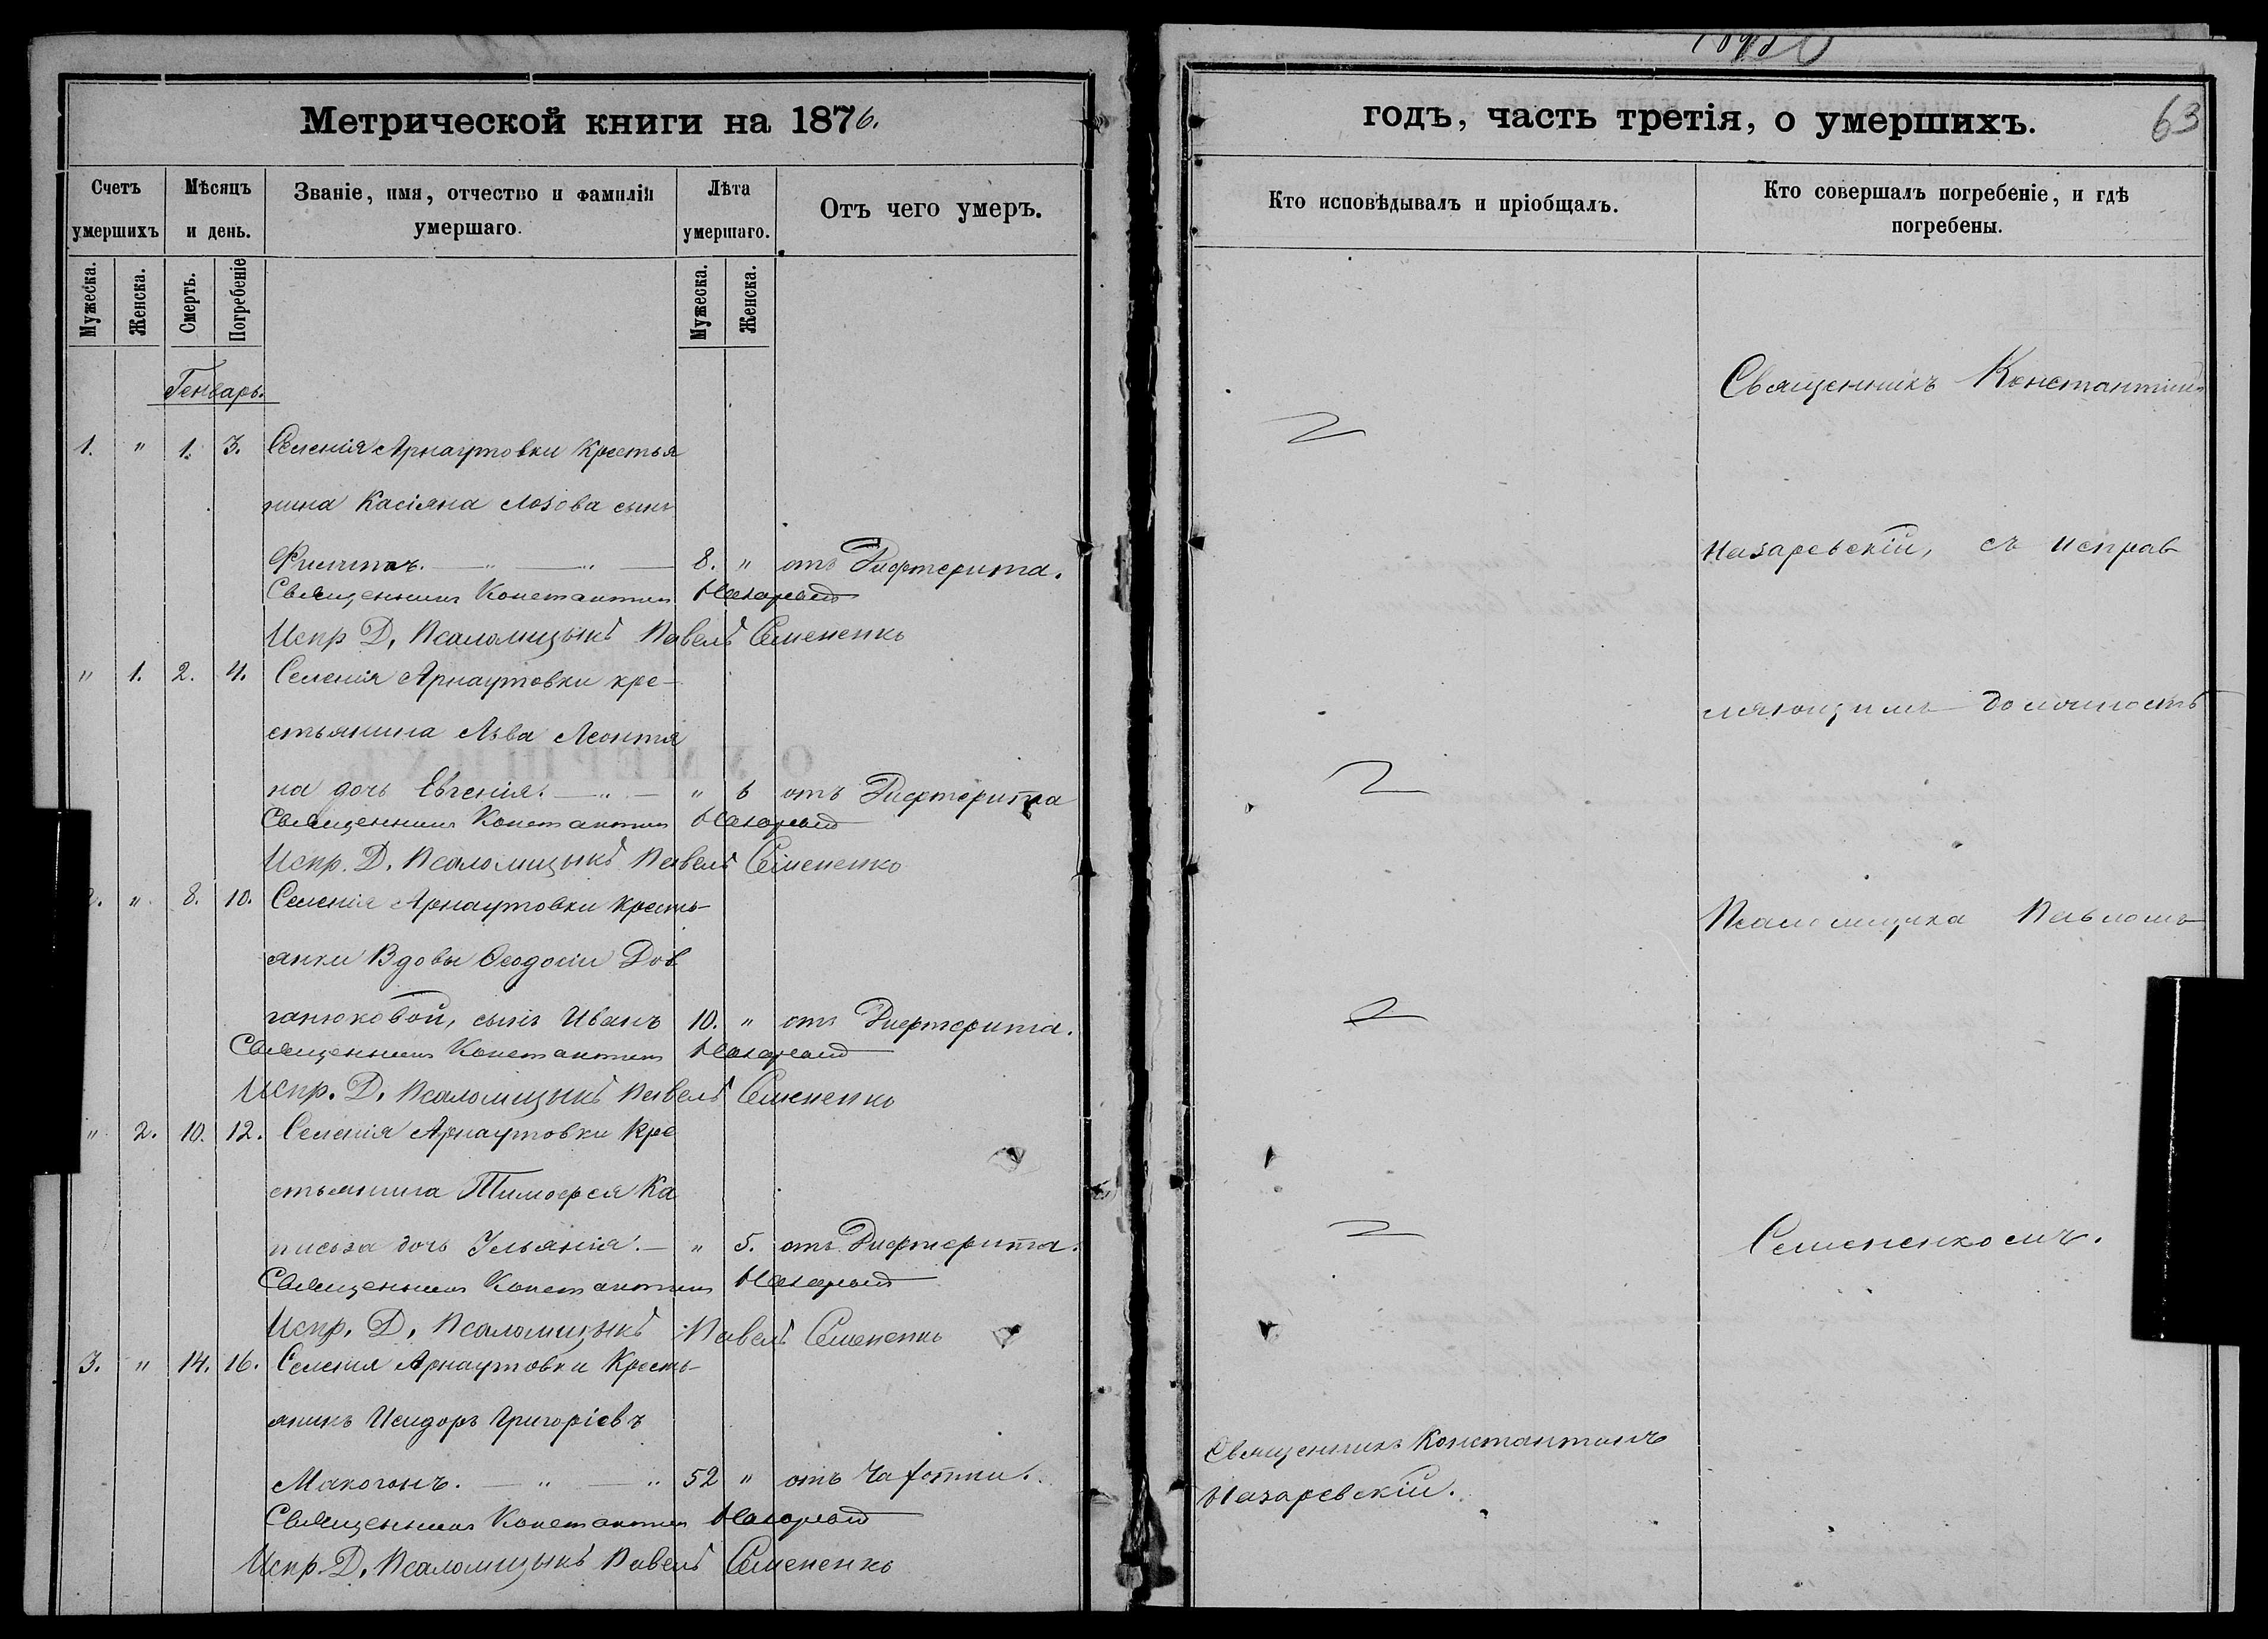 Метрической книги на 1876.
Счетъ умершихъ
Мѣсяцъ и день.
Званіе, имя, отчество и фамилія умершаго.
Лѣта умершаго.
Отъ чего умеръ.
Мужеска.
Женска.
Смерть.
Погребеніе
Мужеска.
Женска.
Генварь.
1. " 1. 3. Селенія Арнаутовки Крестья
нина Касіяна Лозова сынъ
Филиппъ. 8. " отъ Дифтерита.
Священникъ Константин Назаревскій
Испр. Д. Псаломщыкъ Павелъ Семененко
" 1. 2. 4. Селенія Арнаутовки кре-
стьянина Льва Леонтя
на дочь Евгенія. " 6 отъ Дифтерита
Священникъ Константин Назаревскій
Испр. Д. Псаломщыкъ Павелъ Семененко
2. " 8. 10. Селенія Арнаутовки кресть-
янки Вдовы Ѳеодосіи Дов
ганюковой, сынъ Иванъ 10. " отъ Дифтерита.
Священникъ Константин Назаревскій
Испр. Д. Псаломщыкъ Павелъ Семененко
" 2. 10. 12. Селенія Арнаутовки Кре
стьянина Тимофея Ка
дочь Ульянія. " 5. отъ Дифтерита.
Священникъ Константин Назаревскій
Испр. Д. Псаломщыкъ Павелъ Семененко
3. " 14. 16. Селенія Арнаутовки Кресть-
янинъ Исидоръ Григоріевъ
Макогонъ. 52 " отъ Чахотки.
Священникъ Константин Назаревскій
Испр. Д. Псаломщыкъ Павелъ Семененко
годъ, часть третія, о умершихъ.
63
Кто исповѣдывалъ и пріобщалъ.
Кто совершалъ погребеніе, и гдѣ погребены.
Священникъ Константинъ
Назаревскій, съ исправ
ляющимъ должность
Псаломщика Павломъ
Семененкомъ.
Священникъ Константинъ
Назаревскій.